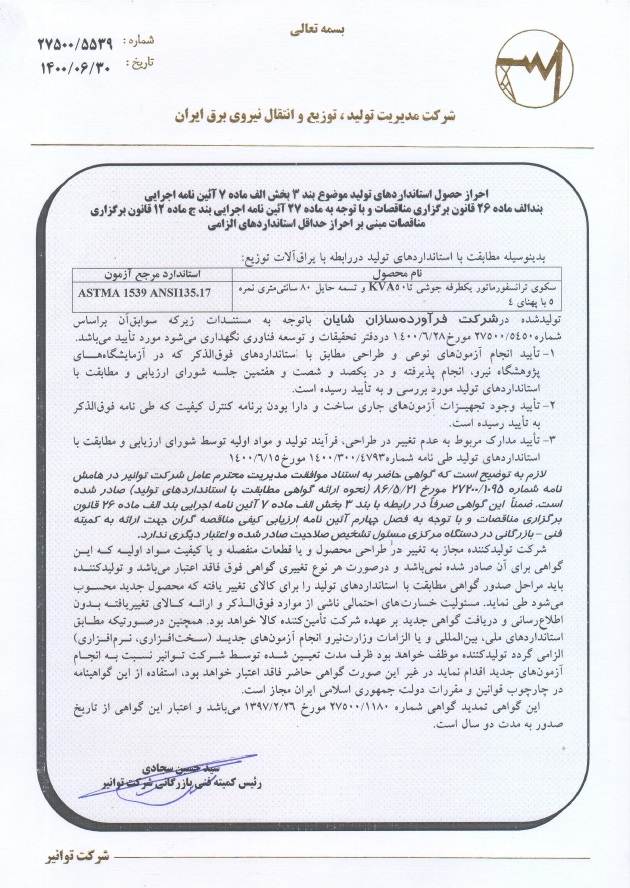 بسمه تعالی
شماره: ۲۷۵۰۰/۵۵۳۹
تاریخ: ۱۴۰۰/۰۶/۳۰
شرکت مدیریت تولید، توزیع و انتقال نیروی برق ایران
احراز حصول استانداردهای تولید موضوع بند ۳ بخش الف ماده ۷ آئین نامه اجرایی
بندالف ماده ۲۶ قانون برگزاری مناقصات و با توجه به ماده ۲۷ آئین نامه اجرایی بند ج ماده ۱۲ قانون برگزاری
مناقصات مبنی بر احراز حداقل استانداردهای الزامی
بدینوسیله مطابقت با استانداردهای تولید دررابطه با یراق‌آلات توزیع:
نام محصول استاندارد مرجع آزمون
سکوی ترانسفورماتور یکطرفه جوشی تا KVA۵۰ و تسمه حایل ۸۰ سانتی‌متری نمره ASTMA 1539 ANSI135.17
۵ با پهنای ٤
تولیدشده درشرکت فرآورده‌سازان شایان باتوجه به مستندات زیرکه سوابق‌آن براساس
شماره۲۷۵۰۰/۵٤۵۰ مورخ۱۴۰۰/۶/۲۸ دردفتر تحقیقات و توسعه فناوری نگهداری می‌شود مورد تأیید می‌باشد.
۱- تأیید انجام آزمون‌های نوعی و طراحی مطابق با استانداردهای فوق‌الذکر که در آزمایشگاه‌های
پژوهشگاه نیرو، انجام پذیرفته و در یکصد و شصت و هفتمین جلسه شورای ارزیابی و مطابقت با
استانداردهای تولید مورد بررسی و به تأیید رسیده است.
۲- تأیید وجود تجهیزات آزمون‌های جاری ساخت و دارا بودن برنامه کنترل کیفیت که طی نامه فوق‌الذکر
به تأیید رسیده است.
۳- تأیید مدارک مربوط به عدم تغییر در طراحی، فرآیند تولید و مواد اولیه توسط شورای ارزیابی و مطابقت با
استانداردهای تولید طی نامه شماره۱۴۰۰/۳۰۰/۴۷۹۳ مورخ۱۴۰۰/۶/۱۵
لازم به توضیح است که گواهی حاضر به استناد موافقت مدیریت محترم عامل شرکت توانیر در هامش
نامه شماره ۲۷۲۰۰/۱۰۹۵ مورخ ۸۶/۵/۲۱ (نحوه ارائه گواهی مطابقت با استانداردهای تولید) صادر شده
است. ضمناً این گواهی صرفاً در رابطه با بند ۳ بخش الف ماده ۷ آئین نامه اجرایی بند الف ماده ۲۶ قانون
برگزاری مناقصات و با توجه به فصل چهارم آئین نامه ارزیابی کیفی مناقصه گران جهت ارائه به کمیته
فنی - بازرگانی در دستگاه مرکزی مسئول تشخیص صلاحیت صادر شده و اعتبار دیگری ندارد.
شرکت تولیدکننده مجاز به تغییر در طراحی محصول و یا قطعات منفصله و یا کیفیت مواد اولیه که این
گواهی برای آن صادر شده نمی‌باشد و درصورت هر نوع تغییری گواهی فوق فاقد اعتبار می‌باشد و تولیدکننده
باید مراحل صدور گواهی مطابقت با استانداردهای تولید را برای کالای تغییر یافته که محصول جدید محسوب
می‌شود طی نماید. مسئولیت خسارت‌های احتمالی ناشی از موارد فوق‌الذکر و ارائه کالای تغییریافته بدون
اطلاع‌رسانی و دریافت گواهی جدید بر عهده شرکت تأمین‌کننده کالا خواهد بود. همچنین درصورتیکه مطابق
استانداردهای ملی، بین‌المللی و یا الزامات وزارت‌نیرو انجام آزمون‌های جدید (سخت‌افزاری، نرم‌افزاری)
الزامی گردد تولیدکننده موظف خواهد بود ظرف مدت تعیین شده توسط شرکت توانیر نسبت به انجام
آزمون‌های جدید اقدام نماید در غیر این صورت گواهی حاضر فاقد اعتبار خواهد بود، استفاده از این گواهینامه
در چارچوب قوانین و مقررات دولت جمهوری اسلامی ایران مجاز است.
این گواهی تمدید گواهی شماره ۲۷۵۰۰/۱۱۸۰ مورخ ۱۳۹۷/۲/۲۶ می‌باشد و اعتبار این گواهی از تاریخ
صدور به مدت دو سال است.
سید حسین سجادی
رئیس کمیته فنی بازرگانی شرکت توانیر
شرکت توانیر